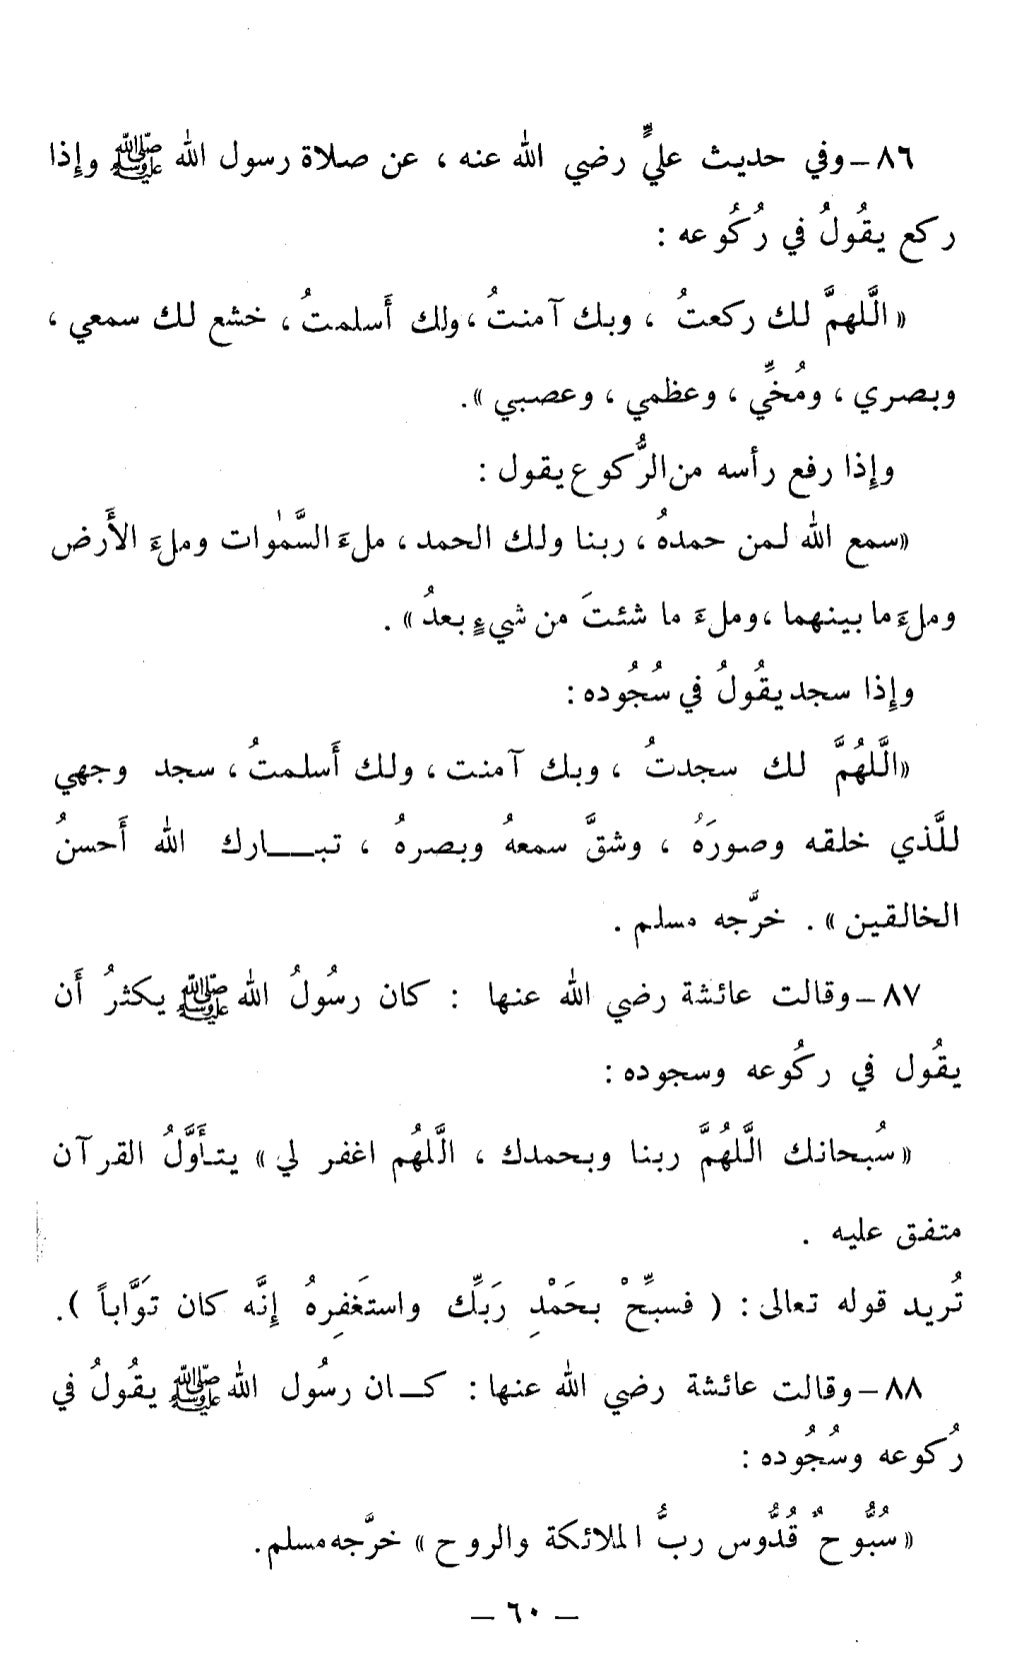 ٨٦ – وفي حديث عليٍّ رضي الله عنه ، عن صلاة رسول الله ﷺ وإِذا
ركع يقُولُ في رُكُوعه :
« الَّلهمَّ لك ركعتُ ، وبك آمنتُ ، ولك أَسلمتُ ، خشع لك سمعي ،
وبصري ، ومُخِّي ، وعظمي ، وعصبي » .
وإِذا رفع رأسه من الرُّكوع يقول :
« سمع الله لمن حمدهُ ، ربنا ولك الحمد ، ملءَ السَّمٰوات وملءَ الأَرض
وملءَ ما بينهما ، وملءَ ما شئتَ من شيءٍ بعدُ » .
وإِذا سجد يقُولُ في سُجُوده :
« الَّلهُمَّ لك سجدتُ ، وبك آمنت ، ولك أَسلمتُ ، سجد وجهي
للَّذي خلقه وصورَهُ ، وشقَّ سمعهُ وبصرهُ ، تبــارك الله أَحسنُ
الخالقين » . خرَّجه مسلم .
٨٧ – وقالت عائشة رضي الله عنها : كان رسُولُ الله ﷺ يكثرُ أَن
يقُول في ركُوعه وسجوده :
« سُبحانك الَّلهُمَّ ربنا وبحمدك ، الَّلهُم اغفر لي » يتأَوَّلُ القرآن
متفق عليه .
تُريد قوله تعالى : ( فسبِّحْ بحَمْدِ رَبِّك واستَغفِرهُ إِنَّه كان توَّاباً ) .
٨٨ – وقالت عائشة رضي الله عنها : كــان رسُول الله ﷺ يقُولُ في
رُكوعه وسُجُوده :
« سُبُّوحٌ قُدُّوس ربُّ الملائكة والروح » خرَّجه مسلم .
– ٦٠ –